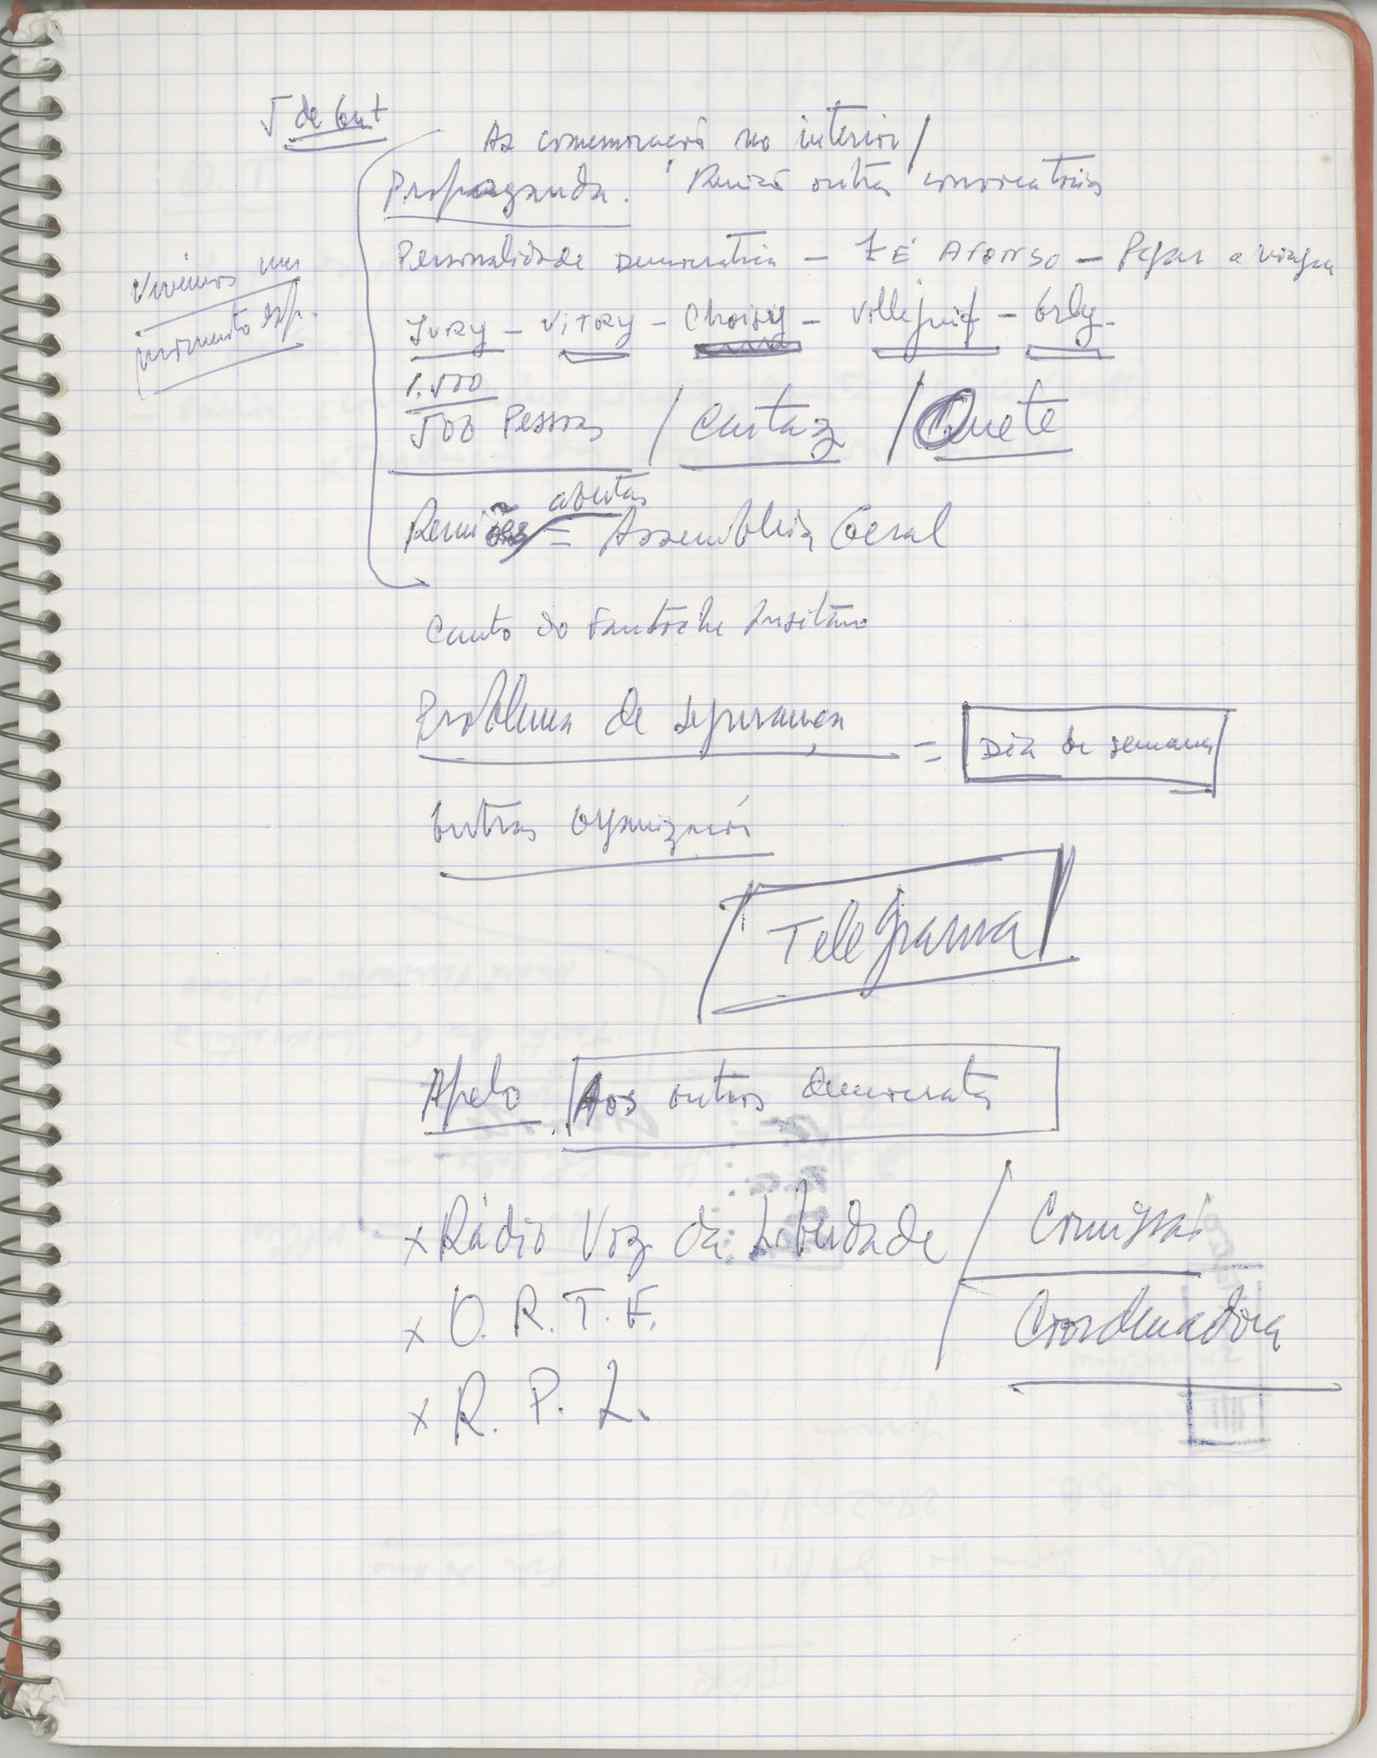 5 de Out
As comemorações no interior /
Propaganda. Reunião outra convocatórias
Personalidade Democratica – ZÉ AFONSO – Pagar a viagem
Vivemos um
momento esp.
Ivry – Vitry – Choisy – Villejuif – Orly.
1.500
500 Pessoas / Cartaz / Quete
Reuniões abertas = Assembleia Geral
Canto do Fantoche Lusitano
Problema de Segurança = Dia de semana
Outras Organizações
Telegrama
Apelo. Aos outros democratas
x Rádio Voz da Liberdade / Comissão
Coordenadora
x O. R. T. F.
x R. P. L.